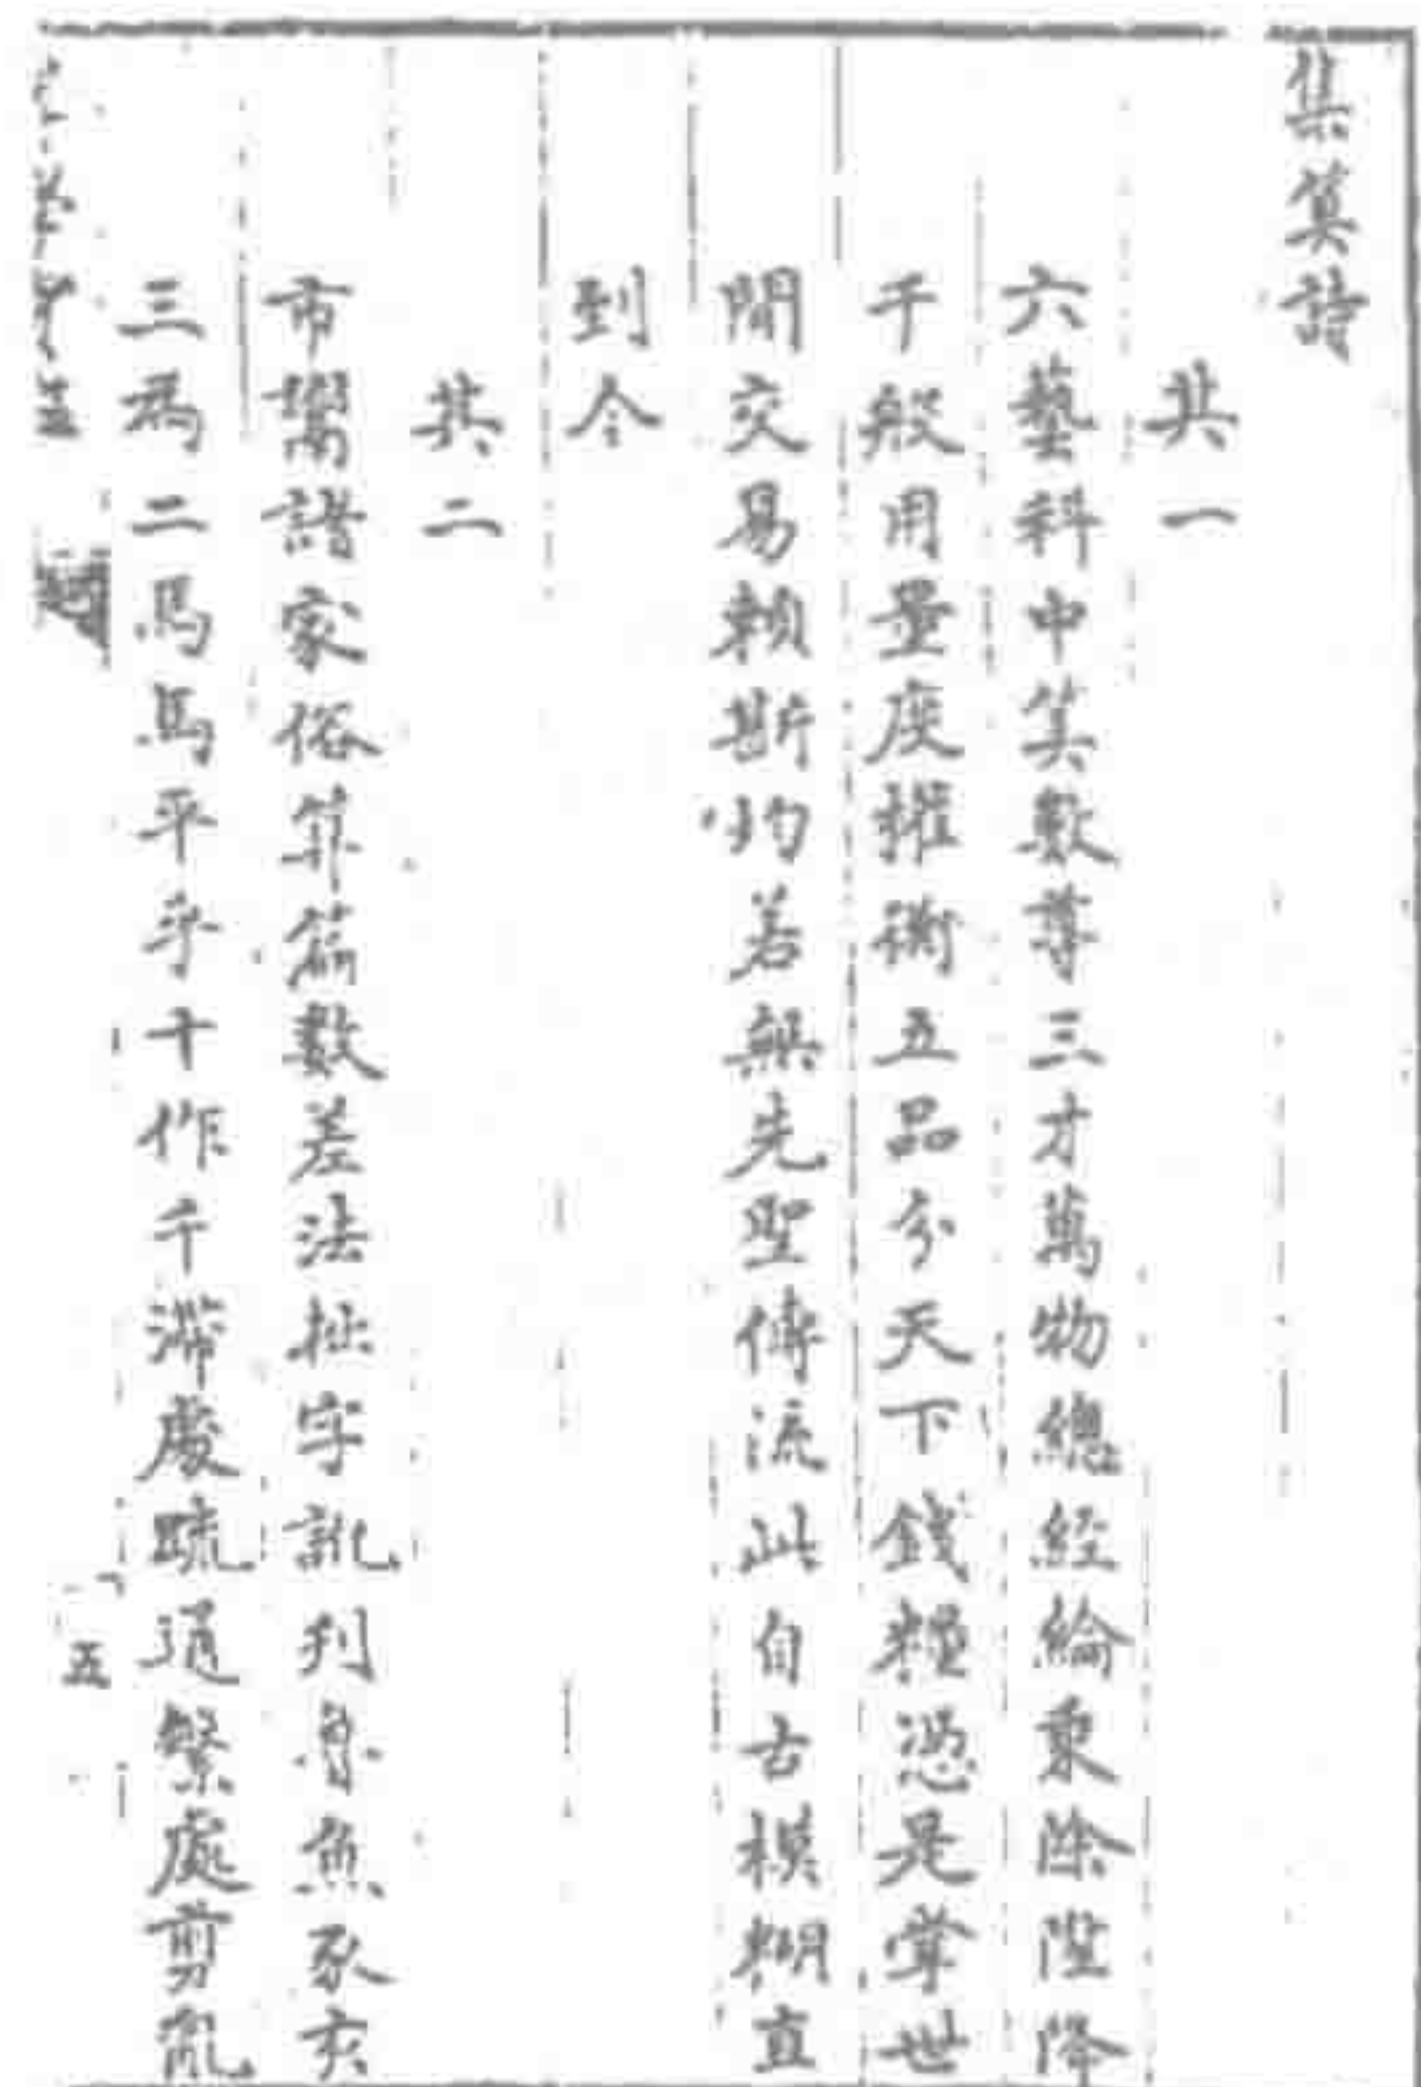 集筭詩
其一
六藝科中筭數尊三才萬物總經綸乘除陞降
千般用量度權衡五品分天下錢糧憑是掌世
間交易賴斯均若無先聖傳流此自古模糊直
到今
其二
市鬻諸家俗筭篇數差法拙字訛刋身魚豕亥
三為二馬馬平乎十作千滯處疏通繁處剪亂
五